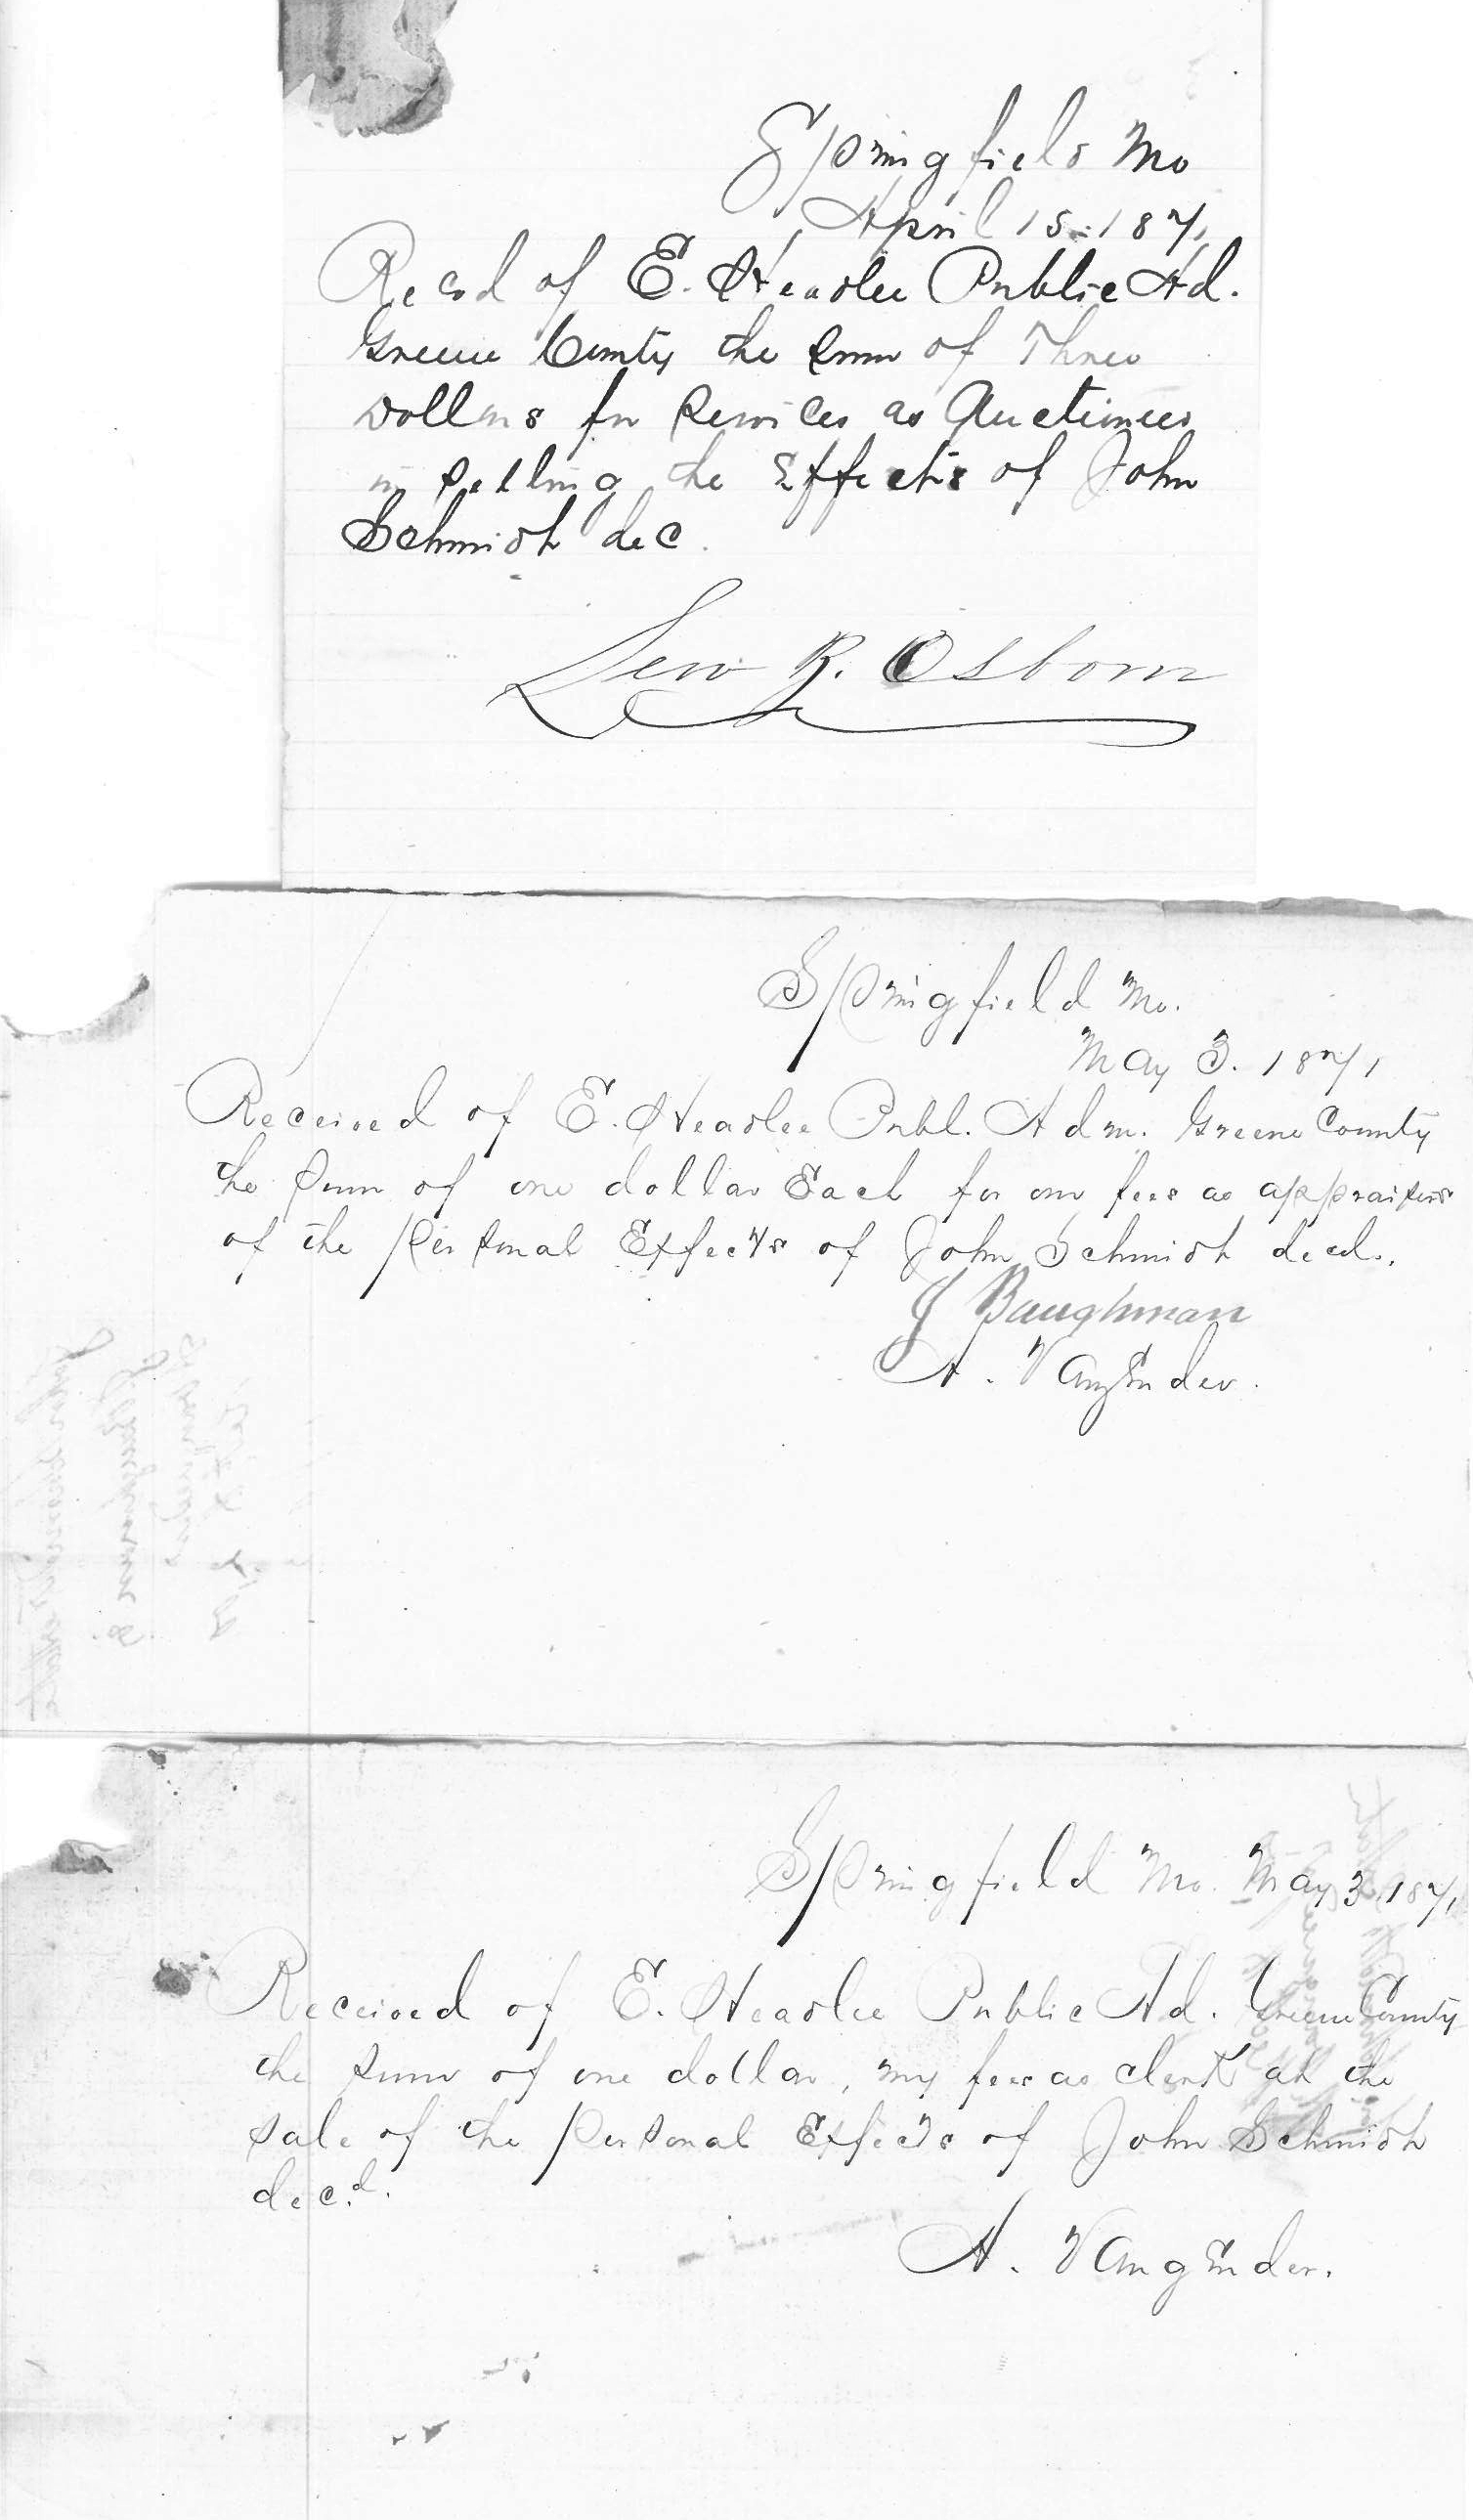 Springfield Mo
April 15. 1871
Recd of E. Headlee Public Ad.
Greene County the sum of Three
Dollars for Services as Auctioneer
in selling the Effects of John
Schmidt dec.
Lew R. Osborn
Springfield Mo.
May 3. 1871
Received of E. Headlee Publ. Adm. Greene County
the sum of one dollar Each for our fees as appraisers
of the personal Effects of John Schmidt decd.
J Baughman
A. VangEnder.
Springfield Mo. May 3. 1871
Received of E. Headlee Public Ad. Greene County
the sum of one dollar, my fees as clerk at the
sale of the personal Effects of John Schmidt
decd.
A. VangEnder.